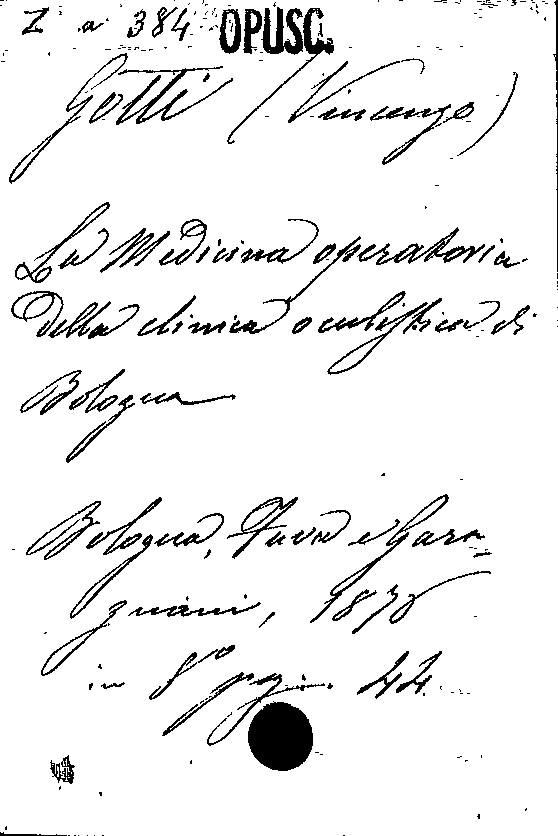 Z a 384 OPUSC.
Gotti (Vincenzo)
La Medicina operatoria
della clinica oculistica di
Bologna
Bologna, Fava e Gara-
gnani, 1878
in 8º pag. 44